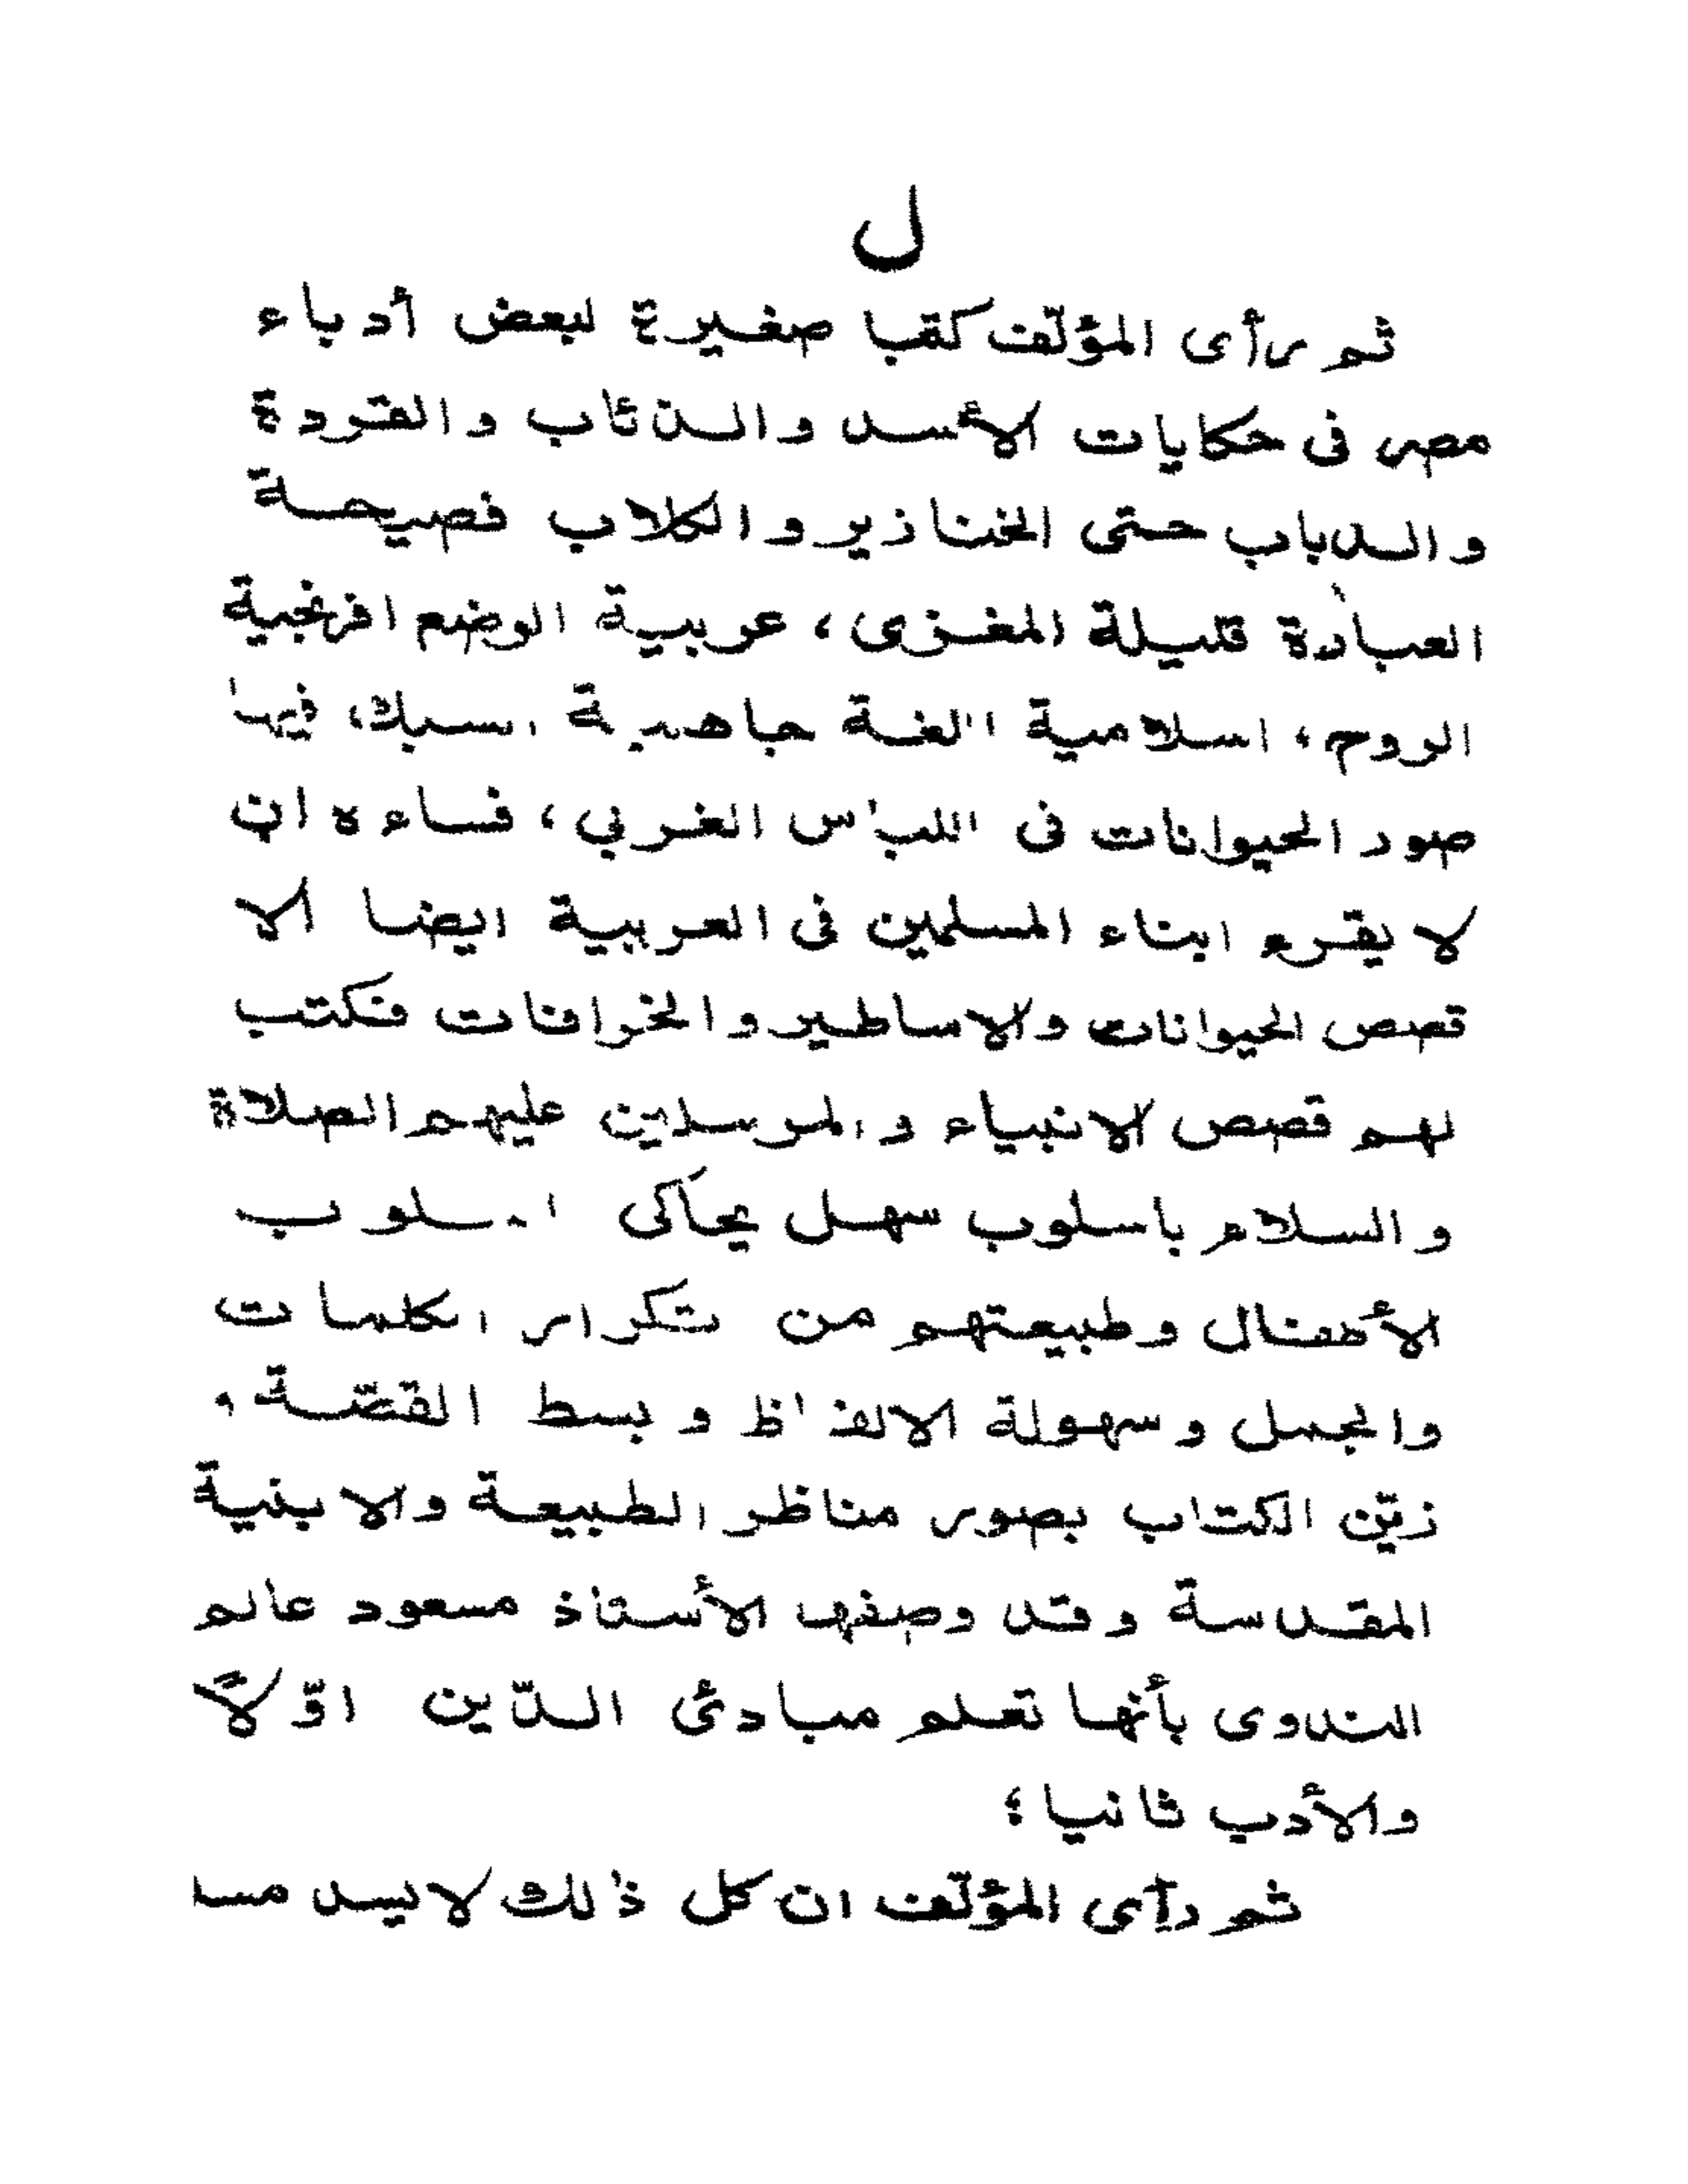 ل
ثم رأى المؤلّف كتبا صغيرة لبعض أدباء
مصر فى حكايات الأسد والذئاب والقردة
والدباب حتى الخنازير والكلاب فصيحة
العبارة قليلة المغزى، عربية الوضع افرنجية
الروح، اسلامية اللغة جاهلية السبك، فيها
صور الحيوانات فى اللباس الغربي، فساءه ان
لا يقرء ابناء المسلمين فى العربية ايضا الا
قصص الحيوانات والاساطير والخرافات فكتب
لهم قصص الانبياء والمرسلين عليهم الصلاة
والسلام باسلوب سهل يحاكى اسلوب
الأطفال وطبيعتهم من تكرار الكلمات
والجمل وسهولة الالفاظ وبسط القصّة،
زيّن الكتاب بصور مناظر الطبيعة والابنية
المقدسة وقد وصفها الأستاذ مسعود عالم
الندوى بأنها تعلم مبادئ الدّين اوّلاً
والأدب ثانيا؛
ثم رأى المؤلّف ان كل ذلك لا يسد مسا